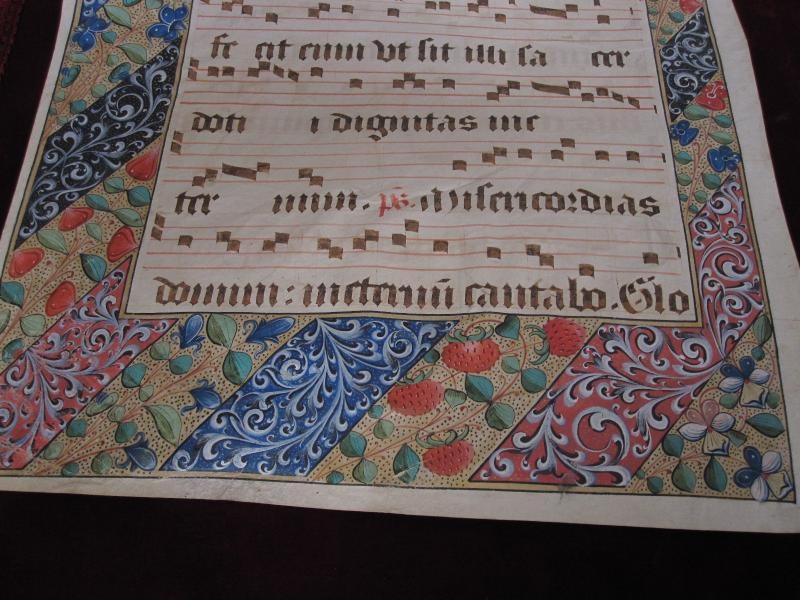 fe cit eum vt sit illi sa cer
doti i dignitas ine
ter num. ps. Misericordias
domini: ineternū cantabo. Glo